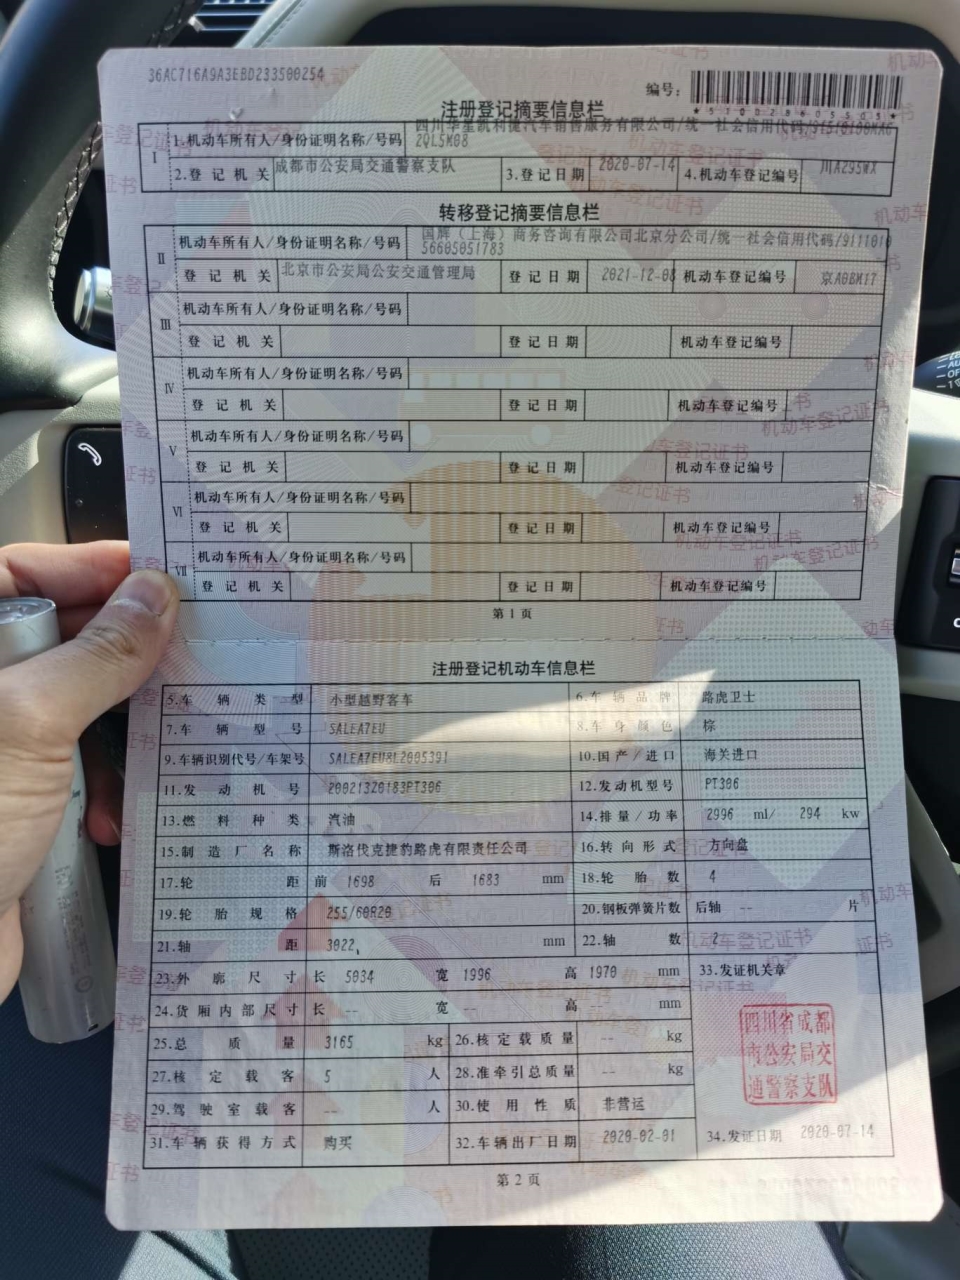 36AC716A9A3EBD233500254
编号:
注册登记摘要信息栏
I 1.机动车所有人/身份证明名称/号码 四川华星凯利捷汽车销售服务有限公司/统一社会信用代码
2QL5K08
2.登记机关 成都市公安局交通警察支队 3.登记日期 2020-07-14 4.机动车登记编号 川A295WX
转移登记摘要信息栏
II 机动车所有人/身份证明名称/号码 国牌(上海)商务咨询有限公司北京分公司/统一社会信用代码/9111010
56605051783
登记机关 北京市公安局公安交通管理局 登记日期 2021-12-08 机动车登记编号
III 机动车所有人/身份证明名称/号码
登记机关 登记日期 机动车登记编号
IV 机动车所有人/身份证明名称/号码
登记机关 登记日期 机动车登记编号
V 机动车所有人/身份证明名称/号码
登记机关 登记日期 机动车登记编号
VI 机动车所有人/身份证明名称/号码
登记机关 登记日期 机动车登记编号
VII 机动车所有人/身份证明名称/号码
登记机关 登记日期 机动车登记编号
第1页
注册登记机动车信息栏
5.车辆类型 小型越野客车 6.车辆品牌 路虎卫士
7.车辆型号 SALEA7EU 8.车身颜色 棕
9.车辆识别代号/车架号 SALEA7EU8L2005391 10.国产/进口 海关进口
11.发动机号 200213Z0183PT306 12.发动机型号 PT306
13.燃料种类 汽油 14.排量/功率 2996 ml/ 294 kw
15.制造厂名称 斯洛伐克捷豹路虎有限责任公司 16.转向形式 方向盘
17.轮距 前 1698 后 1683 mm 18.轮胎数 4
19.轮胎规格 255/60R20 20.钢板弹簧片数 后轴 -- 片
21.轴距 3022 mm 22.轴数 2
23.外廓尺寸 长 5034 宽 1996 高 1970 mm 33.发证机关章
24.货厢内部尺寸 长 -- 宽 -- 高 -- mm
25.总质量 3165 kg 26.核定载质量 -- kg
27.核定载客 5 人 28.准牵引总质量 -- kg
29.驾驶室载客 -- 人 30.使用性质 非营运
四川省成都
市公安局交
通警察支队
31.车辆获得方式 购买 32.车辆出厂日期 2020-02-01 34.发证日期 2020-07-14
第2页